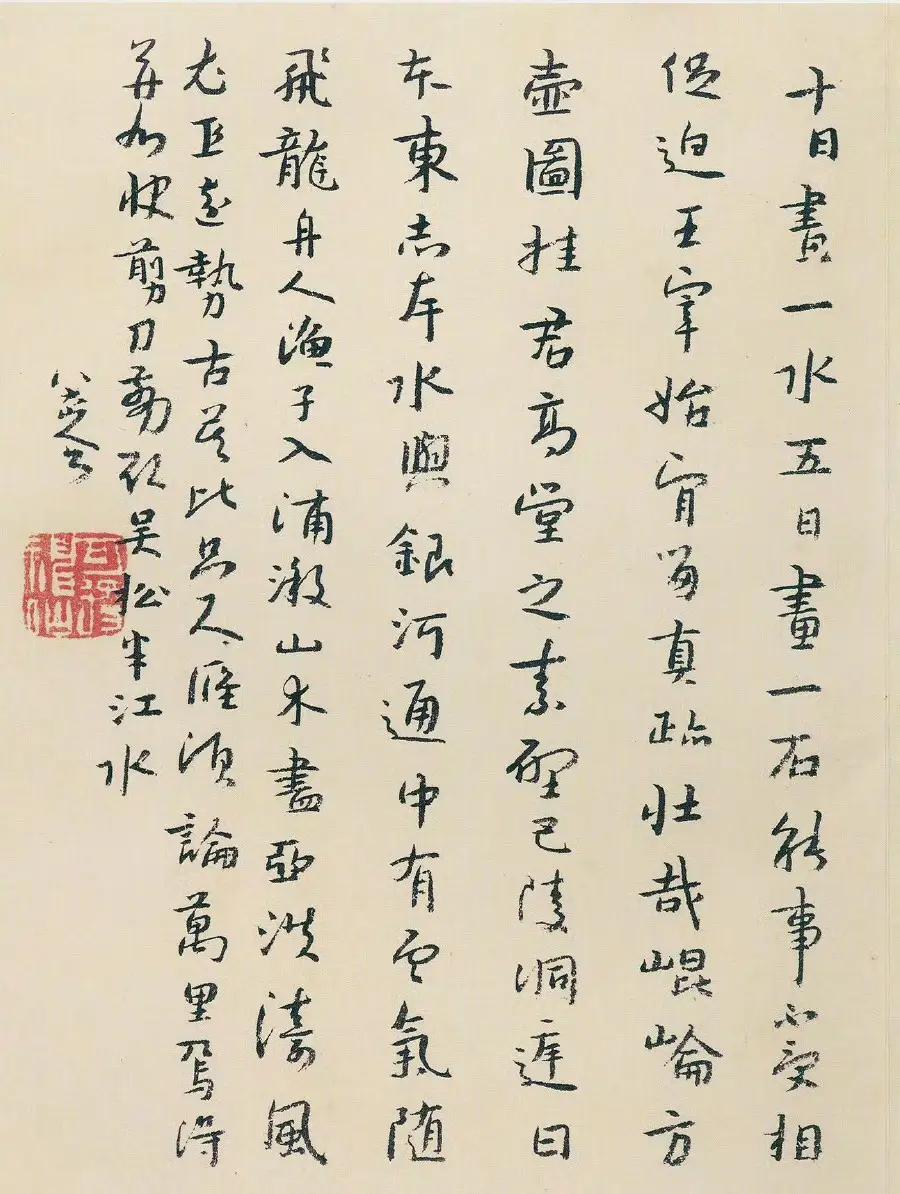 十日畫一水五日畫一石能事不受相
促迫王宰始肯留真跡壯哉崐崘方
壺圖挂君高堂之素壁巴陵洞庭日
本東赤岸水與銀河通中有雲氣隨
飛龍舟人漁子入浦漵山木盡亞洪濤風
尤工遠勢古莫比咫尺應須論萬里焉得
并州快剪刀翦取吴松半江水
八大山人
可得神仙